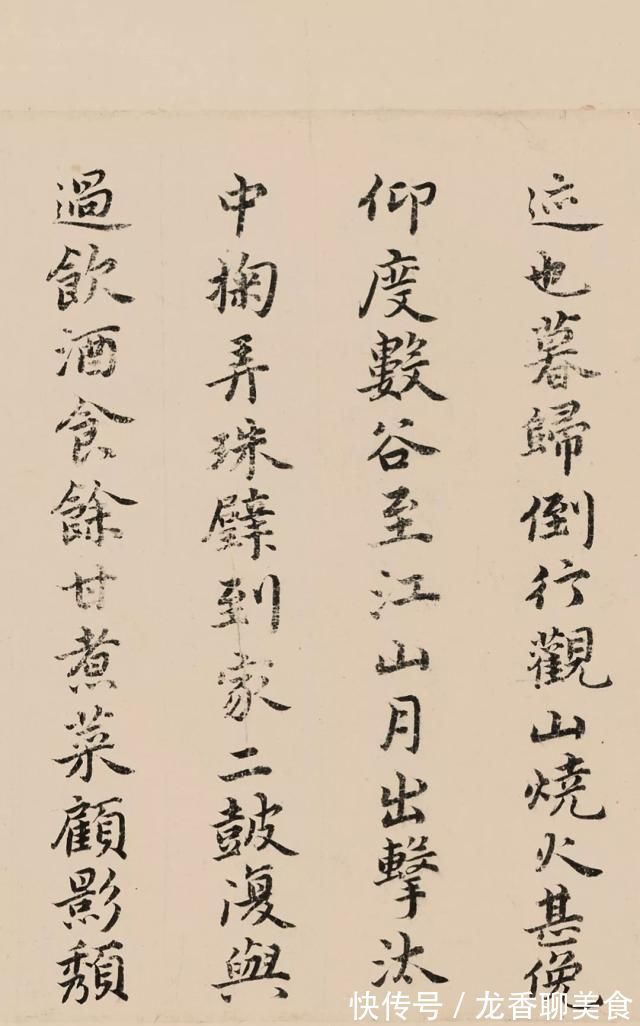 迹也暮歸倒行觀山燒火甚俛
仰度數谷至江山月出擊汰
中掬弄珠璧到家二鼓復與
過飲酒食餘甘煮菜顧影頹
快传号／龙香聊美食